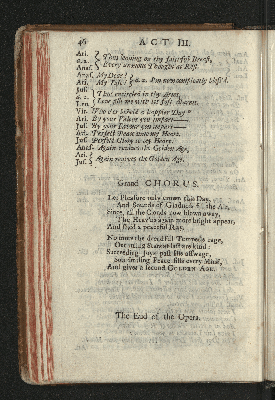 46 ACT III.
Ari. Thus leaning on thy faithful Breast,
a. 2.
Anas. Every anxious Thought at Rest.
Anas. My Dear!
Ari. My Life! a. 2. I'm now compleatly bless'd.
Jul. Thus encircled in thy Arms,
a. 2.
Love fills me with its soft Alarms.
Vit. Who e'er beheld a happier Day?
Ari. By your Valour you impart
Jul. By your Favour you impart
Ari. Perfect Peace into my Heart.
Jul. Perfect Glory to my Heart.
Anas. Again revives the Golden Age,
Ari.
Jul. Again revives the Golden Age.
Grand CHORUS.
Let Pleasure only crown this Day,
And Sounds of Gladness fill the Air,
Since, all the Clouds now blown away,
The Heav'ns again more bright appear,
And shed a peaceful Ray.
No more the dreadful Tempests rage,
Our ruling Stars at last are kind:
Succeeding Joys past Ills asswage,
Soft smiling Peace fills every Mind,
And gives a second GOLDEN AGE.
The End of the Opera.